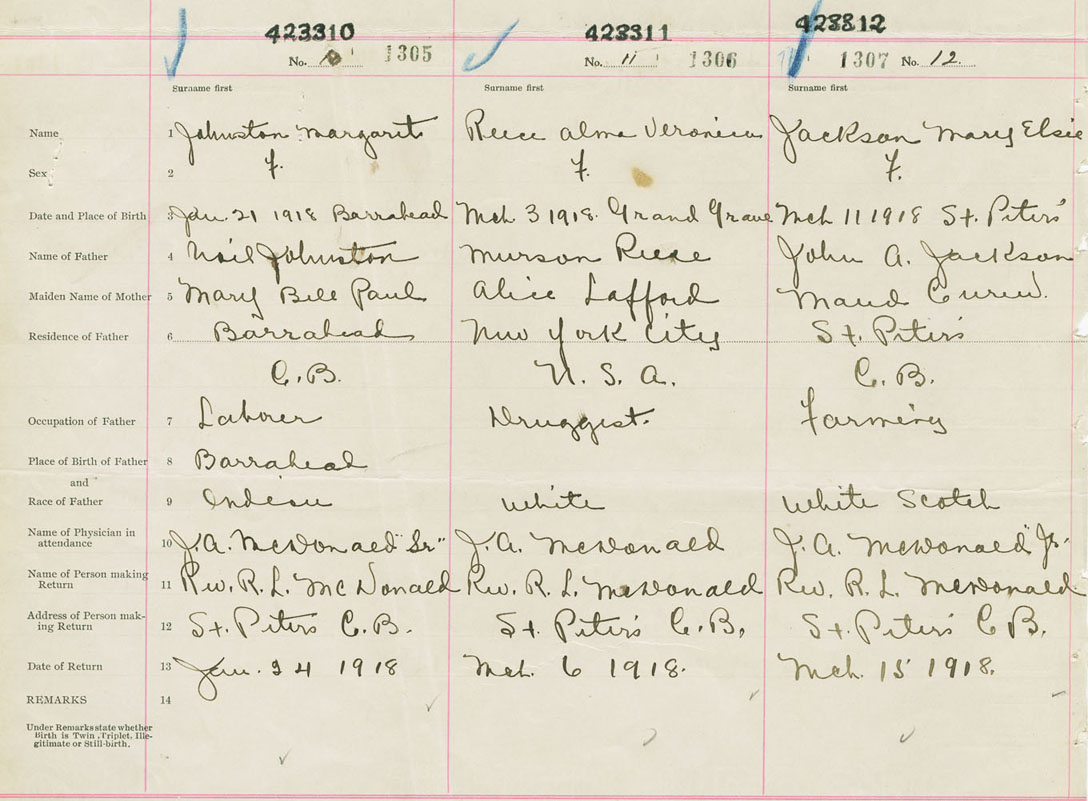 423310 423311 423312
No. 10 1305 No. 11 1306 1307 No. 12.
Surname first Surname first Surname first
Name 1 Johnston Margarit Reece Alma Veronica Jackson Mary Elsie
Sex 2 F. F. F.
Date and Place of Birth 3 Jan. 21 1918 Barrahead Mch 3 1918. Grand Grave Mch 11 1918 St. Peters'
Name of Father 4 Neil Johnston Munson Reece John A. Jackson
Maiden Name of Mother 5 Mary Bell Paul Alice Lafford Maud Curew.
Residence of Father 6 Barrahead New York City St. Peter's
C.B. U. S. A. C. B.
Occupation of Father 7 Laborer Druggist. Farming
Place of Birth of Father 8 Barrahead
and
Race of Father 9 Indian White White Scotch
Name of Physician in
attendance 10 J.A. McDonald "Sr" J. A. McDonald J. A. McDonald "Jr."
Name of Person making
Return 11 Rev. R. L. McDonald Rev. R. L. McDonald Rev. R. L. McDonald.
Address of Person mak-
ing Return 12 St. Peters C.B. St. Peter's C.B. St. Peters' C B.
Date of Return 13 Jan. 24 1918 Mch. 6 1918. Mch. 15 1918.
REMARKS 14
Under Remarks state whether
Birth is Twin, Triplet, Ille-
gitimate or Still-birth.